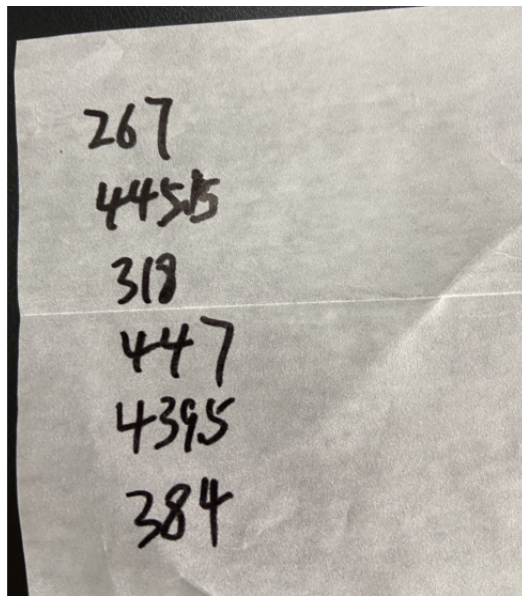 267
445.15
318
447
439.5
384